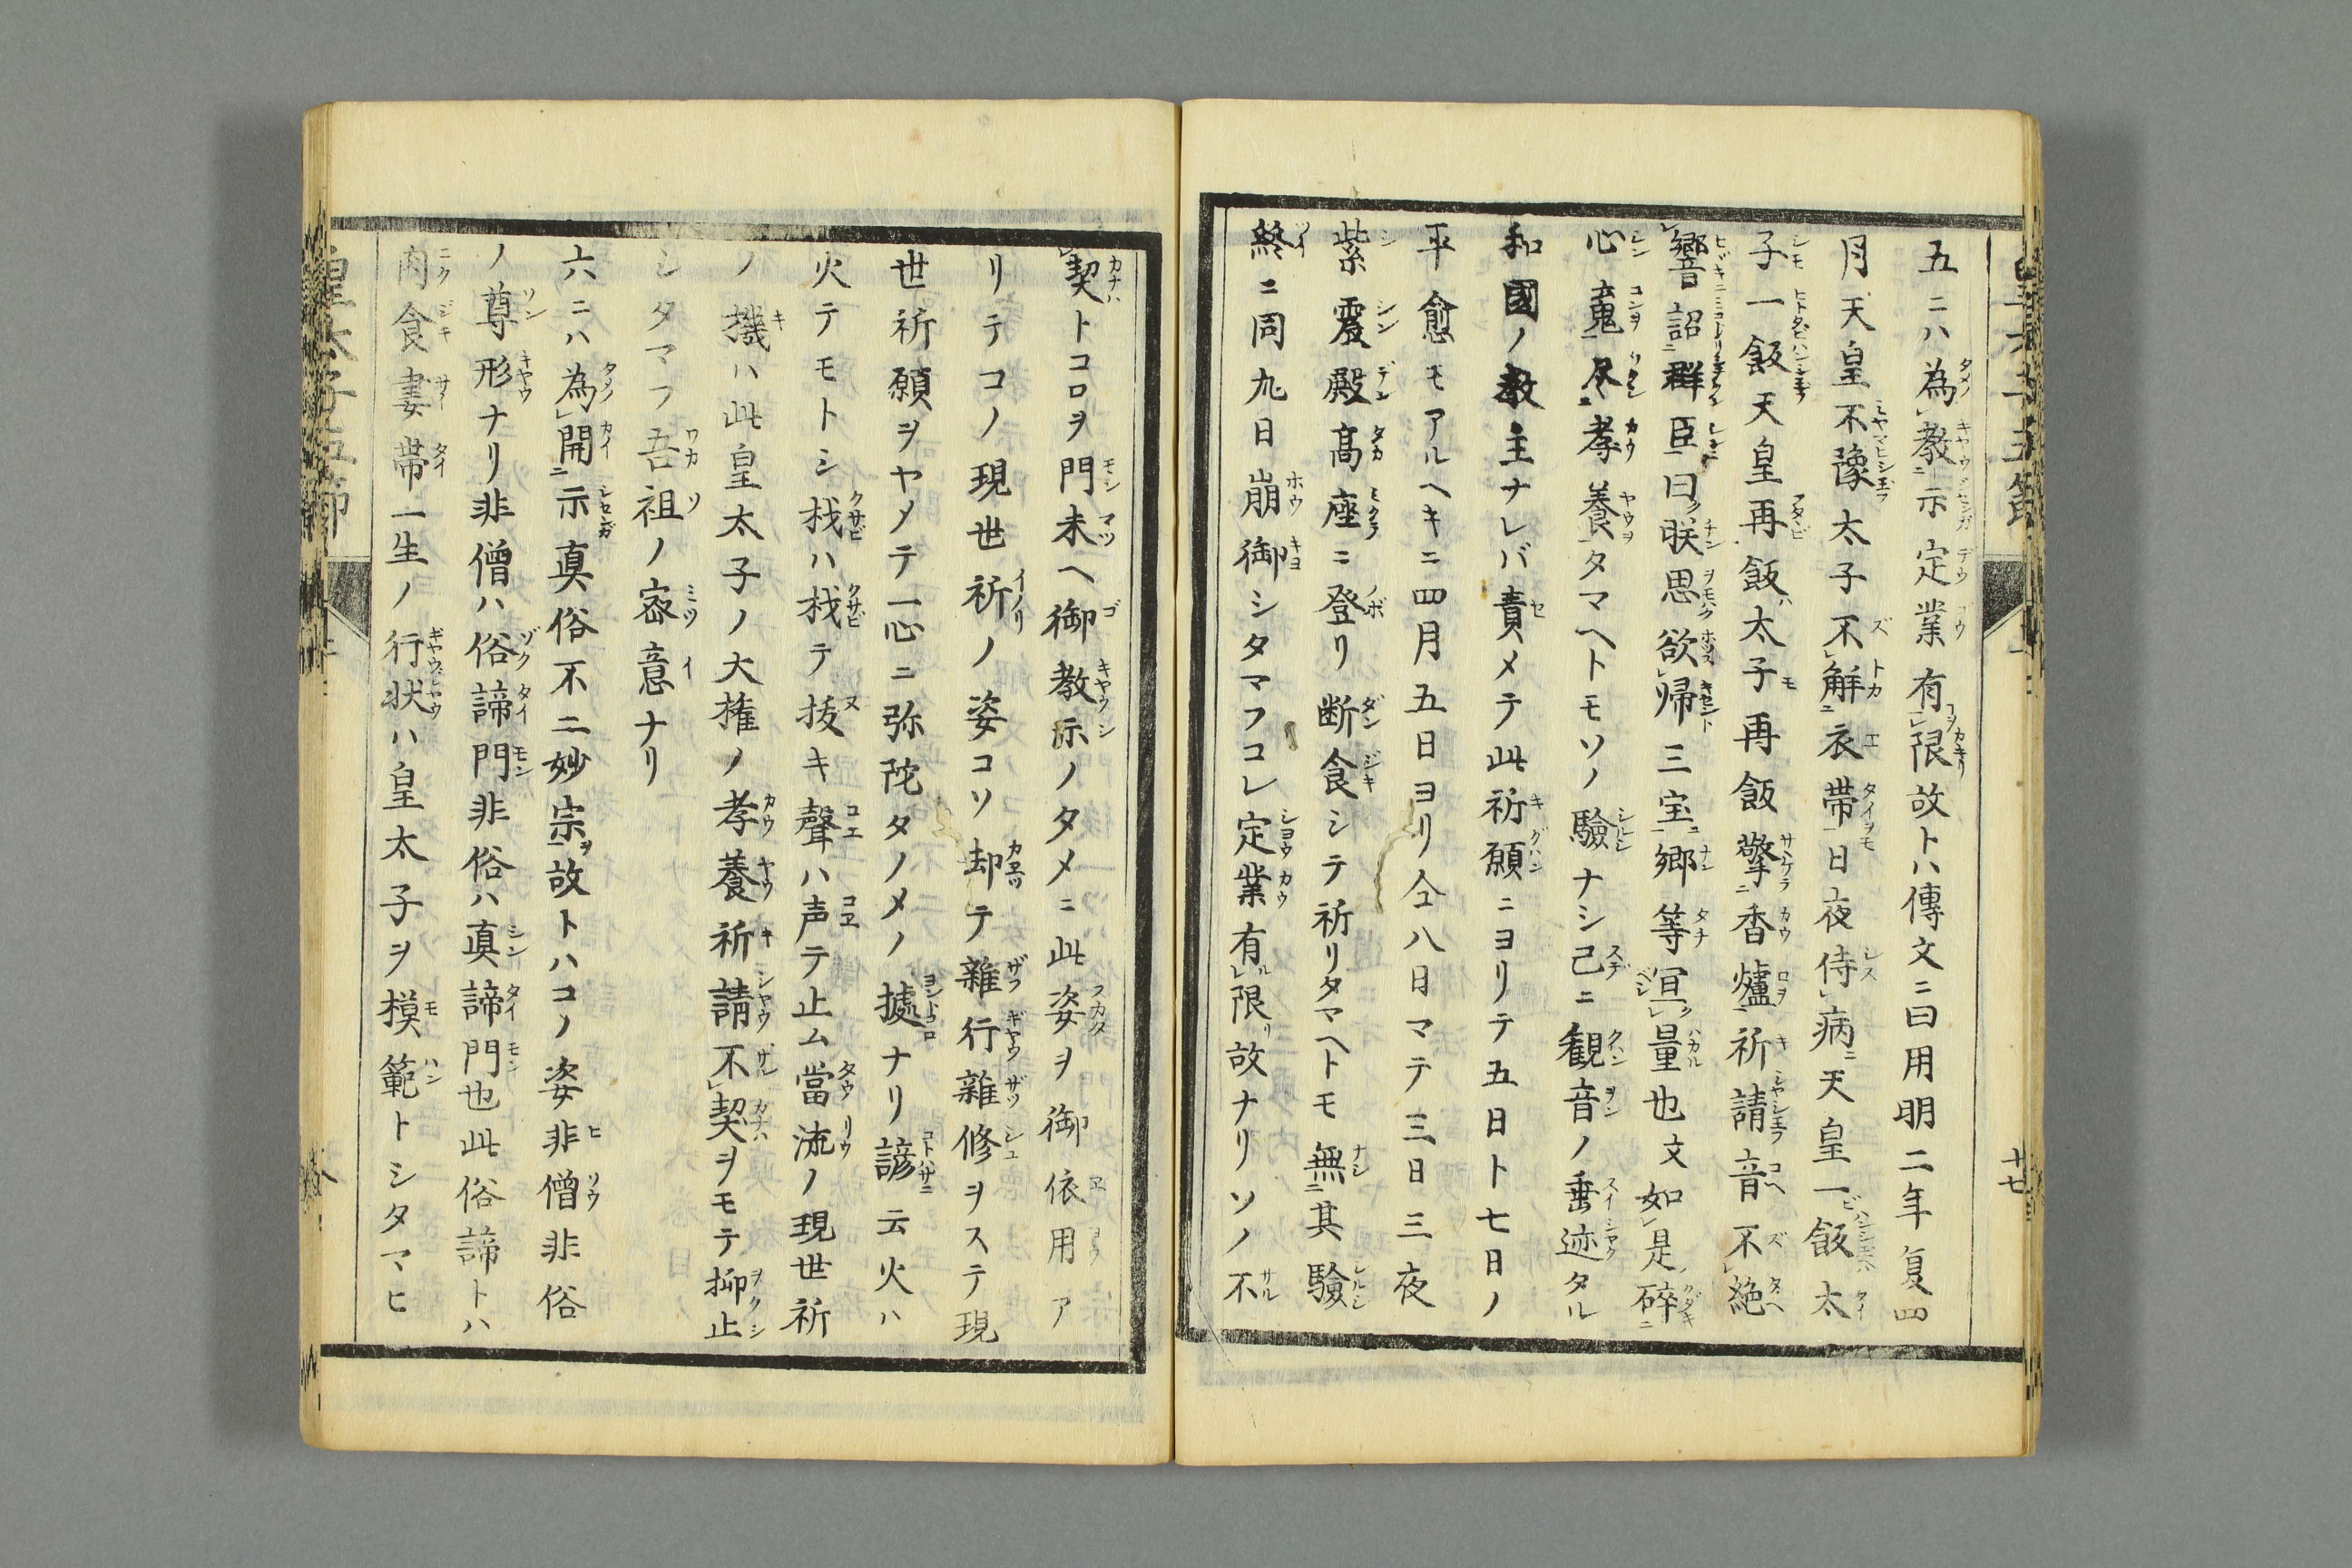 五ニハ為教示定業有限故トハ傳文ニ曰用明二年夏四
月天皇不豫太子不解衣帯日夜侍病天皇一飯太
子一飯天皇再飯太子再飯擎香爐祈請音不絶
響詔群臣曰朕思欲帰三宝郷等冝量也文如是碎
心䰟尽孝養タマヘトモソノ驗ナシ已ニ観音ノ垂迹タル
和國ノ教主ナレバ責メテ此祈願ニヨリテ五日ト七日ノ
平愈モアルヘキニ四月五日ヨリ仝八日マテ三日三夜
紫震殿高座ニ登リ断食シテ祈リタマヘトモ無其驗
終ニ同九日崩御シタマフコレ定業有限故ナリソノ不
契トコロヲ門末ヘ御教示ノタメニ此姿ヲ御依用ア
リテコノ現世祈ノ姿コソ却テ雜行雜修ヲステ現
世祈願ヲヤメテ一心ニ弥陀タノメノ㨿ナリ諺云火ハ
火テモトシ栈ハ栈テ抜キ聲ハ声テ止ム當流ノ現世祈
ノ機ハ此皇太子ノ大権ノ孝養祈請不契ヲモテ抑止
シタマフ吾祖ノ宻意ナリ
六ニハ為開示真俗不二妙宗故トハコノ姿非僧非俗
ノ尊形ナリ非僧ハ俗諦門非俗ハ真諦門也此俗諦トハ
肉食妻帯一生ノ行状ハ皇太子ヲ模範トシタマヒ
十七